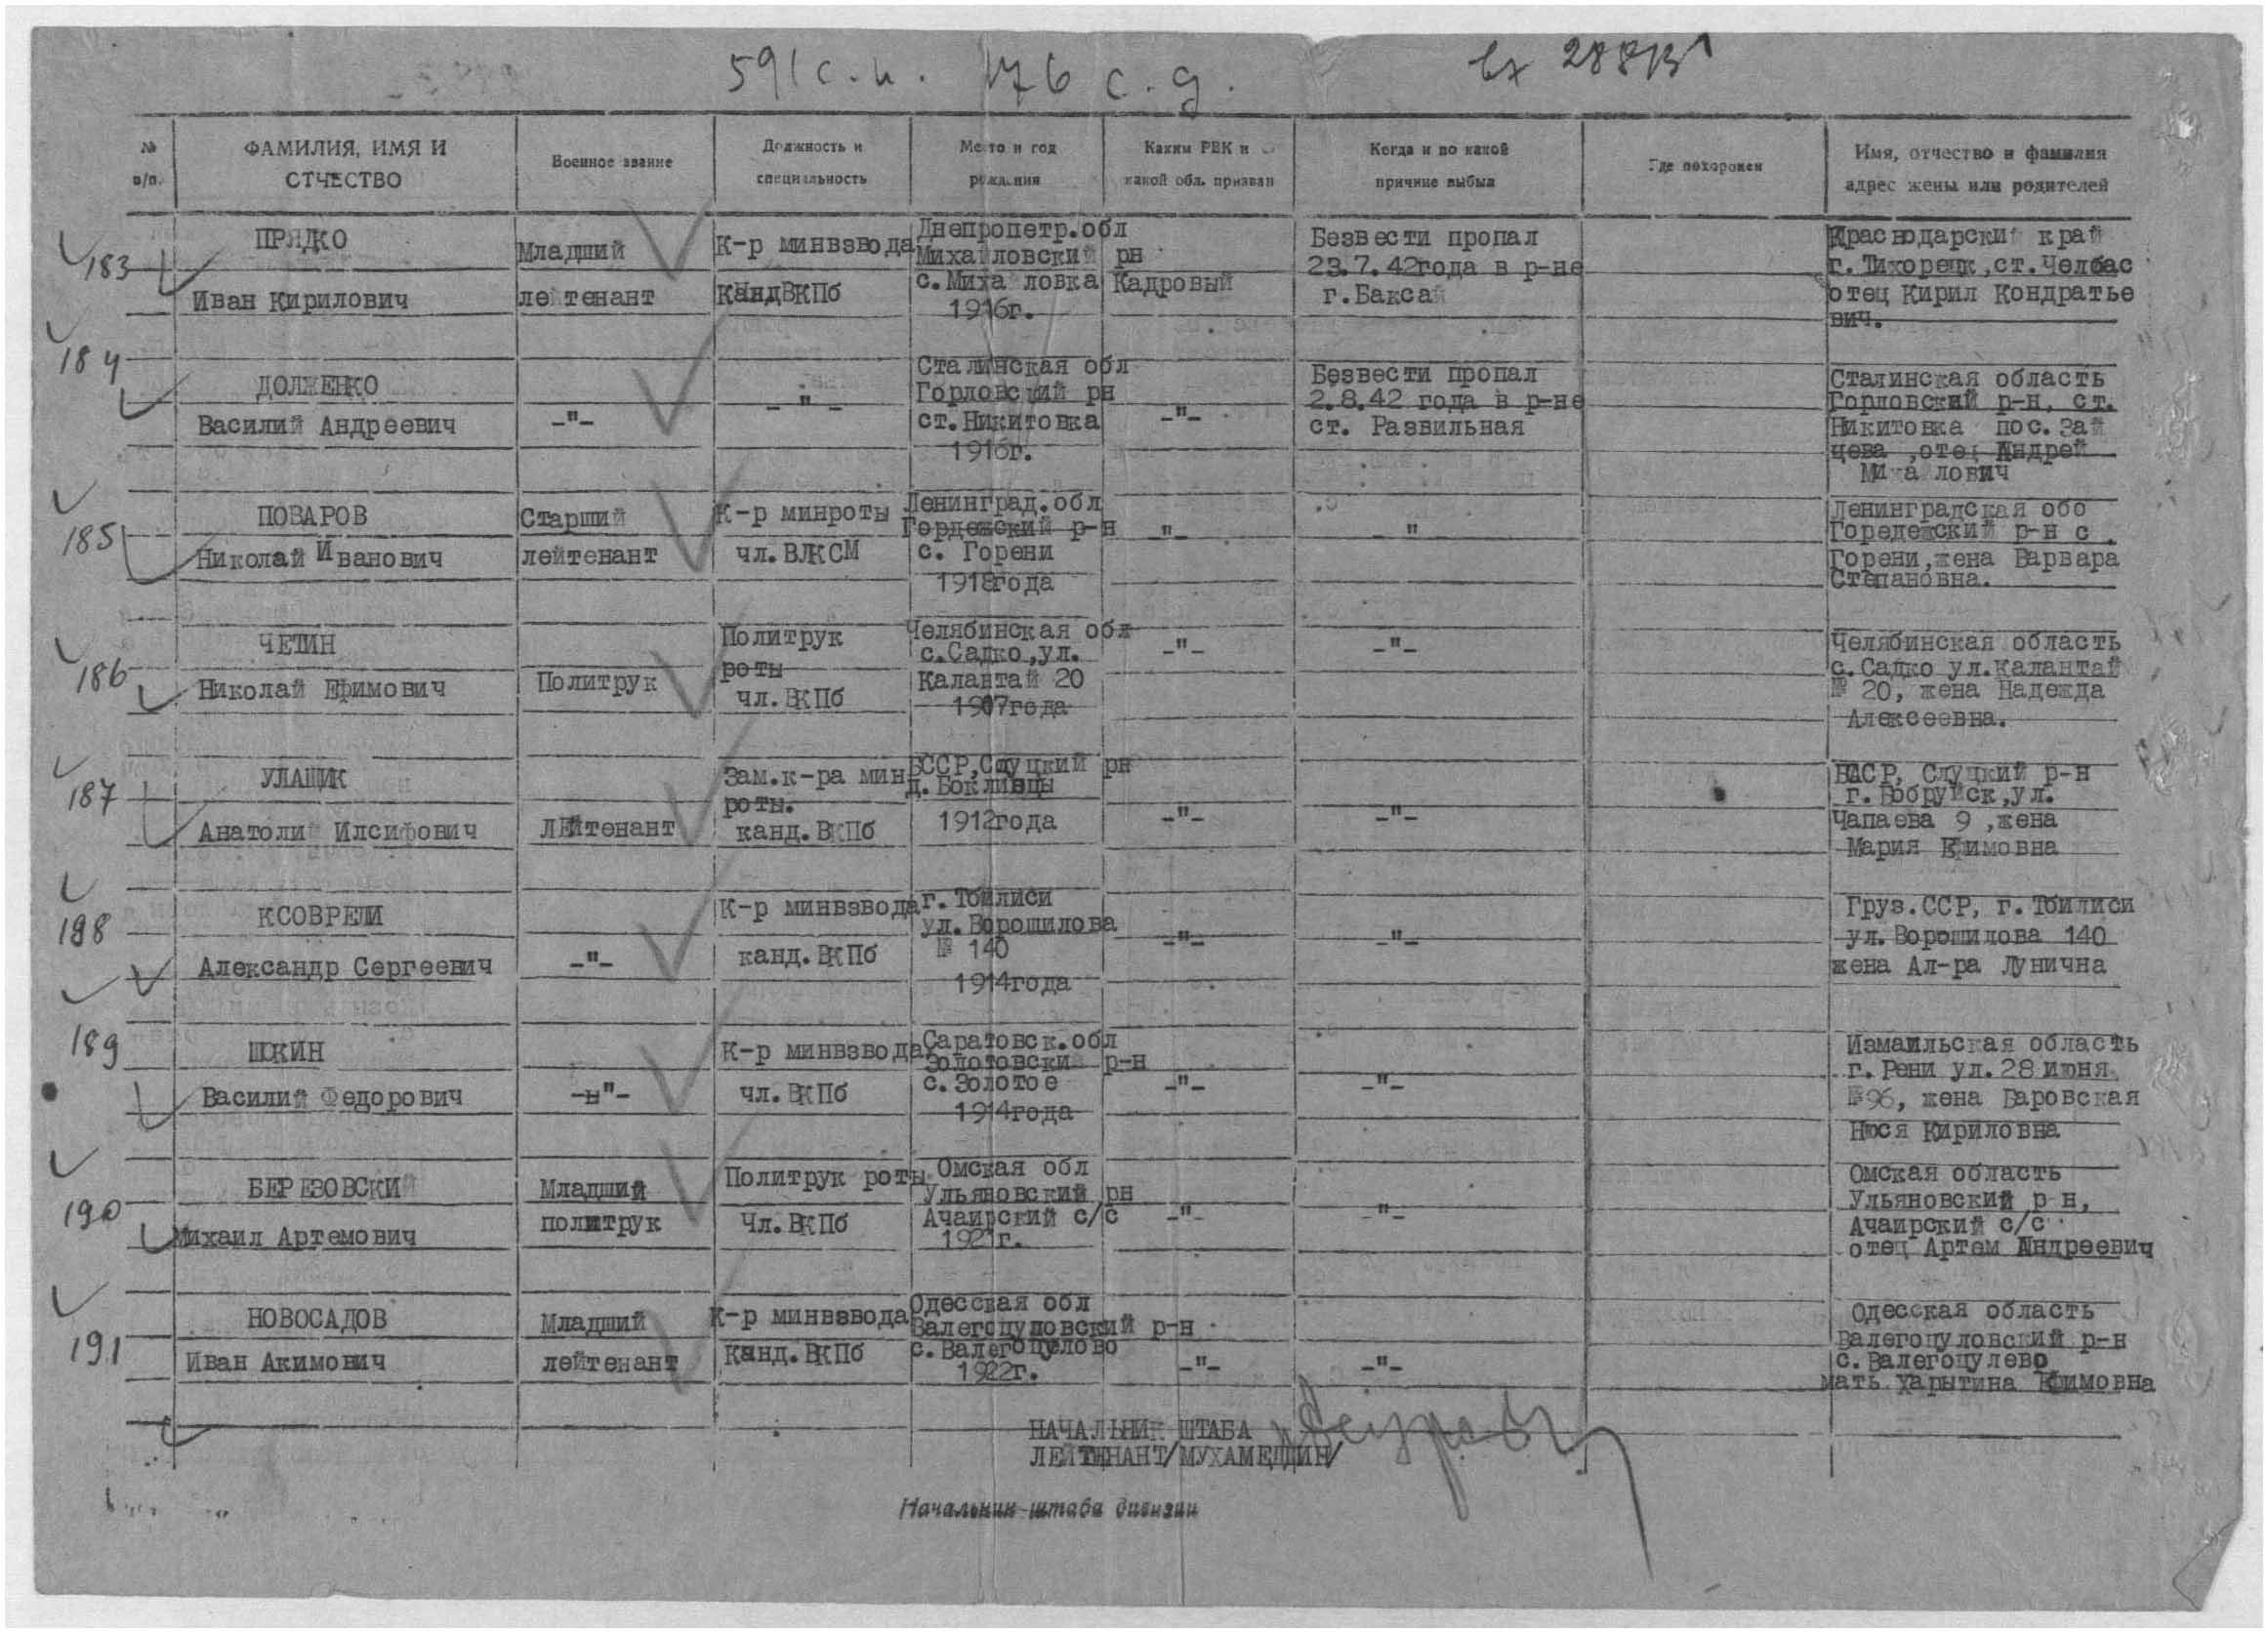 591 с.п. 176 с.д.
вх 2881
№ п/п.
ФАМИЛИЯ, ИМЯ И ОТЧЕСТВО
Военное звание
Должность и специальность
Место и год рождения
Каким РВК и какой обл. призван
Когда и по какой причине выбыл
Где похоронен
Имя, отчество и фамилия адрес жены или родителей
183
ПРЯДКО
Иван Кирилович
Младший
лейтенант
К-р минвзвода
КандВКПб
Днепропетр.обл
Михайловский рн
с.Миха ловка
1916г.
Кадровый
Безвести пропал
23.7.42года в р-не
г.Баксай
Краснодарский край
г.Тихорецк,ст.Челбас
отец Кирил Кондратье
вич.
184
ДОЛЖЕНКО
Василий Андреевич
-"-
-"-
Сталинская обл
Горловский рн
ст.Никитовка
1916г.
-"-
Безвести пропал
2.8.42 года в р-не
ст. Развильная
Сталинская область
Горловский р-н, ст.
Никитовка пос.Зай
цева ,отец Андрей
Миха лович
185
ПОВАРОВ
Николай Иванович
Старший
лейтенант
К-р минроты
чл.ВЛКСМ
Ленинград.обл
Гордежский р-н
с. Горени
1918года
-"-
-"
Ленинградская обо
Горедежский р-н с.
Горени,жена Варвара
Степановна.
186
ЧЕТИН
Николай Ефимович
Политрук
Политрук
роты
чл.ВКПб
Челябинская обл
с.Садко,ул.
Калантай 20
1907года
-"-
-"-
Челябинская область
с.Садко ул.Калантай
№ 20, жена Надежда
Алексеевна.
187
УЛАЩИК
Анатолий Илсифович
ЛЕйтенант
Зам.к-ра мин
роты.
канд.ВКПб
БССР,Слуцкий рн
д.Боклинцы
1912года
-"-
-"-
БССР, Слуцкий р-н
г.Бобруйск,ул.
Чапаева 9 ,жена
Мария Ефимовна
198
КСОВРЕЛИ
Александр Сергеевич
-"-
К-р минвзвода
канд.ВКПб
г.Тбилиси
ул.Ворошилова
№ 140
1914года
-"-
-"-
Груз.ССР, г.Тбилиси
ул.Ворошилова 140
жена Ал-ра Лунична
189
ШОКИН
Василий Федорович
-н"-
К-р минвзвода
чл.ВКПб
Саратовск.обл
Золотовский р-н
с.Золотое
1914года
-"-
-"-
Измаильская область
г.Рени ул.28 июня
№96, жена Баровская
Нюся Кириловна
190
БЕРЕЗОВСКИЙ
Михаил Артемович
Младший
политрук
Политрук роты
Чл.ВКПб
Омская обл
Ульяновский рн
Ачаирский с/с
1921г.
-"-
-"-
Омская область
Ульяновский р-н,
Ачаирский с/с
отец Артем Андреевич
191
НОВОСАДОВ
Иван Акимович
Младший
лейтенант
К-р минвзвода
Канд.ВКПб
Одесская обл
Валегоцуловский р-н
с.Валегоцулово
1922г.
-"-
-"-
Одесская область
Валегоцуловский р-н
с.Валегоцулево
мать Харытина Ефимовна
НАЧАЛЬНИК ШТАБА
ЛЕЙТЕНАНТ/МУХАМЕДДИН/
Начальник штаба дивизии